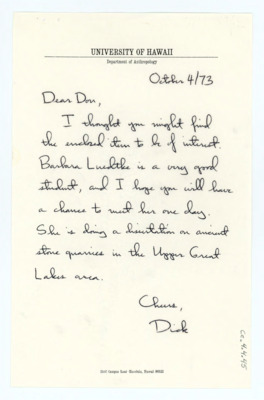 UNIVERSITY OF HAWAII
Department of Anthropology
October 4/73
Dear Don,
I thought you might find
the enclosed item to be of interest.
Barbara Luedtke is a very good
student, and I hope you will have
a chance to meet her one day.
She is doing a dissertation on ancient
stone quarries in the Upper Great
Lakes area.
Cheers,
Dick
Honolulu, Hawaii 96822